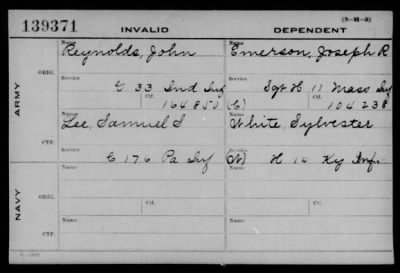 (3-H-3)
139371 INVALID DEPENDENT
ARMY
ORIG.
Name Reynolds, John
Name Emerson, Joseph R
Service G 33 Ind Inf
Service Sgt H 11 Mass Inf
Ctf. 164850
(C) Ctf. 104238
CTF.
Name Lee, Samuel S
Name White, Sylvester
Service C 176 Pa Inf
Service (W) H 14 Ky Inf
NAVY
ORIG.
Name
Name
Service
Ctf.
Service
Ctf.
CTF.
Name
Name
Service
Service